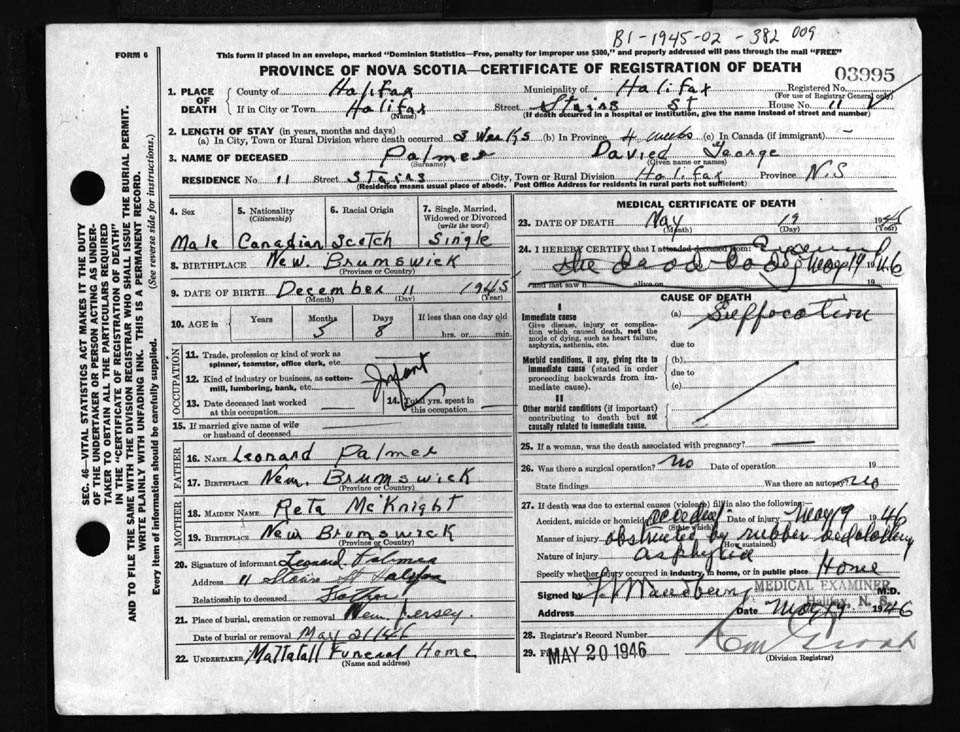 B1-1945-02-382 009
FORM 6
This form if placed in an envelope, marked "Dominion Statistics—Free, penalty for improper use $300," and properly addressed will pass through the mail "FREE"
PROVINCE OF NOVA SCOTIA—CERTIFICATE OF REGISTRATION OF DEATH
03995
1. PLACE OF DEATH
County of Halifax Municipality of Halifax Registered No.
(For use of Registrar General only)
If in City or Town Halifax Street Stairs St House No. 11
(Name) (If death occurred in a hospital or institution, give the name instead of street and number)
2. LENGTH OF STAY (in years, months and days)
(a) In City, Town or Rural Division where death occurred 3 Weeks (b) In Province 4 weeks (c) In Canada (if immigrant) -
3. NAME OF DECEASED Palmer David George
(Surname) (Given name or names)
RESIDENCE No. 11 Street Stairs City, Town or Rural Division Halifax Province N.S
(Residence means usual place of abode. Post Office Address for residents in rural parts not sufficient)
4. Sex 5. Nationality 6. Racial Origin 7. Single, Married, Widowed or Divorced
(Citizenship) (write the word)
Male Canadian Scotch Single
8. BIRTHPLACE New Brunswick
(Province or Country)
9. DATE OF BIRTH December 11 1945
(Month) (Day) (Year)
10. AGE in Years Months Days If less than one day old
5 8 hrs. or min.
OCCUPATION
11. Trade, profession or kind of work as spinner, teamster, office clerk, etc.
12. Kind of industry or business, as cotton-mill, lumbering, bank, etc. Infant
13. Date deceased last worked at this occupation
14. Total yrs. spent in this occupation
15. If married give name of wife or husband of deceased
FATHER
16. NAME Leonard Palmer
17. BIRTHPLACE New Brunswick
(Province or Country)
MOTHER
18. MAIDEN NAME Reta McKnight
19. BIRTHPLACE New Brunswick
(Province or Country)
20. Signature of informant Leonard Palmer
Address 11 Stairs St Halifax
Relationship to deceased Father
21. Place of burial, cremation or removal New Jersey
Date of burial or removal May 21/46
22. UNDERTAKER Mattatall Funeral Home
(Name and address)
MEDICAL CERTIFICATE OF DEATH
23. DATE OF DEATH May 19 1946
(Month) (Day) (Year)
24. I HEREBY CERTIFY that I attended deceased from:
the dead body May 19 1946
and last saw h alive on 19
CAUSE OF DEATH
I
Immediate cause (a) Suffocation
Give disease, injury or complication which caused death, not the mode of dying, such as heart failure, asphyxia, asthenia, etc.
due to
Morbid conditions, if any, giving rise to immediate cause (stated in order proceeding backwards from immediate cause). (b)
due to
(c)
II
Other morbid conditions (if important) contributing to death but not causally related to immediate cause.
25. If a woman, was the death associated with pregnancy?
26. Was there a surgical operation? no Date of operation 19
State findings Was there an autopsy no
27. If death was due to external causes (violence) fill in also the following:
Accident, suicide or homicide accident Date of injury May 19 1946
(State which)
Manner of injury obstructed by rubber bedclothing
(How sustained)
Nature of injury asphyxia
Specify whether injury occurred in industry, in home, or in public place Home
Signed by M.D.
MEDICAL EXAMINER
Halifax, N. S.
Address Date May 19 1946
28. Registrar's Record Number
29. MAY 20 1946
(Division Registrar)
SEC. 46—VITAL STATISTICS ACT MAKES IT THE DUTY
OF THE UNDERTAKER OR PERSON ACTING AS UNDER-
TAKER TO OBTAIN ALL THE PARTICULARS REQUIRED
IN THE "CERTIFICATE OF REGISTRATION OF DEATH"
AND TO FILE THE SAME WITH THE DIVISION REGISTRAR WHO SHALL ISSUE THE BURIAL PERMIT.
WRITE PLAINLY WITH UNFADING INK. THIS IS A PERMANENT RECORD.
Every item of information should be carefully supplied. (See reverse side for instructions.)